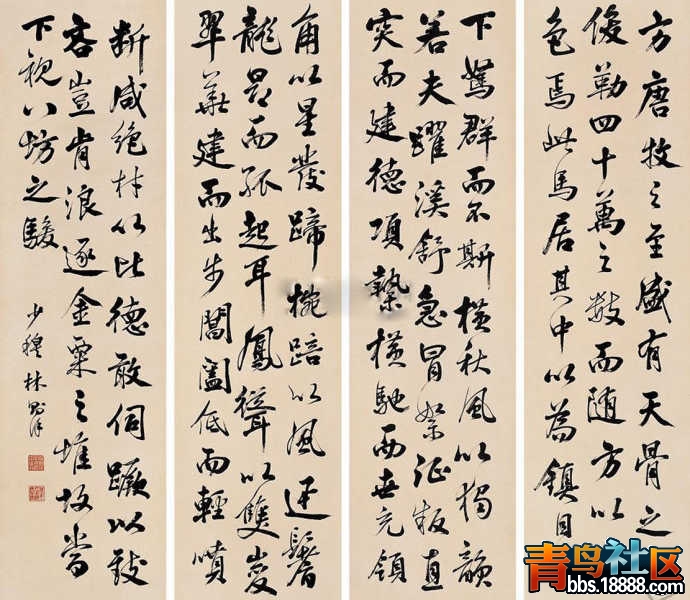 方唐牧之至盛有天骨之
俊勒四十萬之數而随方以
色焉此馬居其中以為鎮目
下駑群而不斯橫秋風以獨韻
若夫躍溪舒急冒絮征叛直
突而建德項縶橫馳而世充領
角以星發蹄椀踣以風迅鬐
龍顒而孤起耳鳳聳以雙峻
翠華建而出步閶闔低而輕噴
断咸絶材以比德敢伺蹶以致
吝豈肯浪逐金粟之堆故當
下視八坊之駿
少穆林則徐
青鸟社区
bbs.18888.com